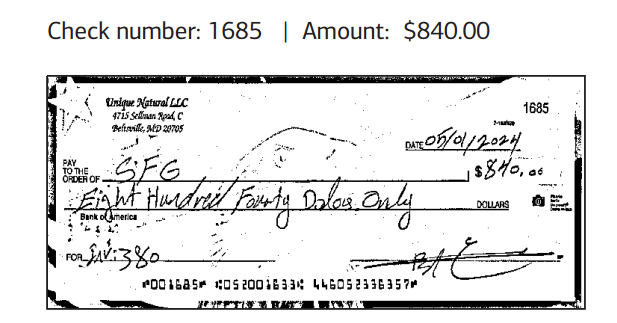 Check number: 1685 | Amount: $840.00
Unique Natural LLC
4715 Sellman Road, C
Beltsville, MD 20705
1685
DATE 05/01/2024
PAY
TO THE
ORDER OF SFG
$840.00
Eight Hundred Fourty Dolos Only
DOLLARS
Bank of America
FOR Inv: 380
⑈001685⑈ ⑆052001633⑆ 446052336357⑈